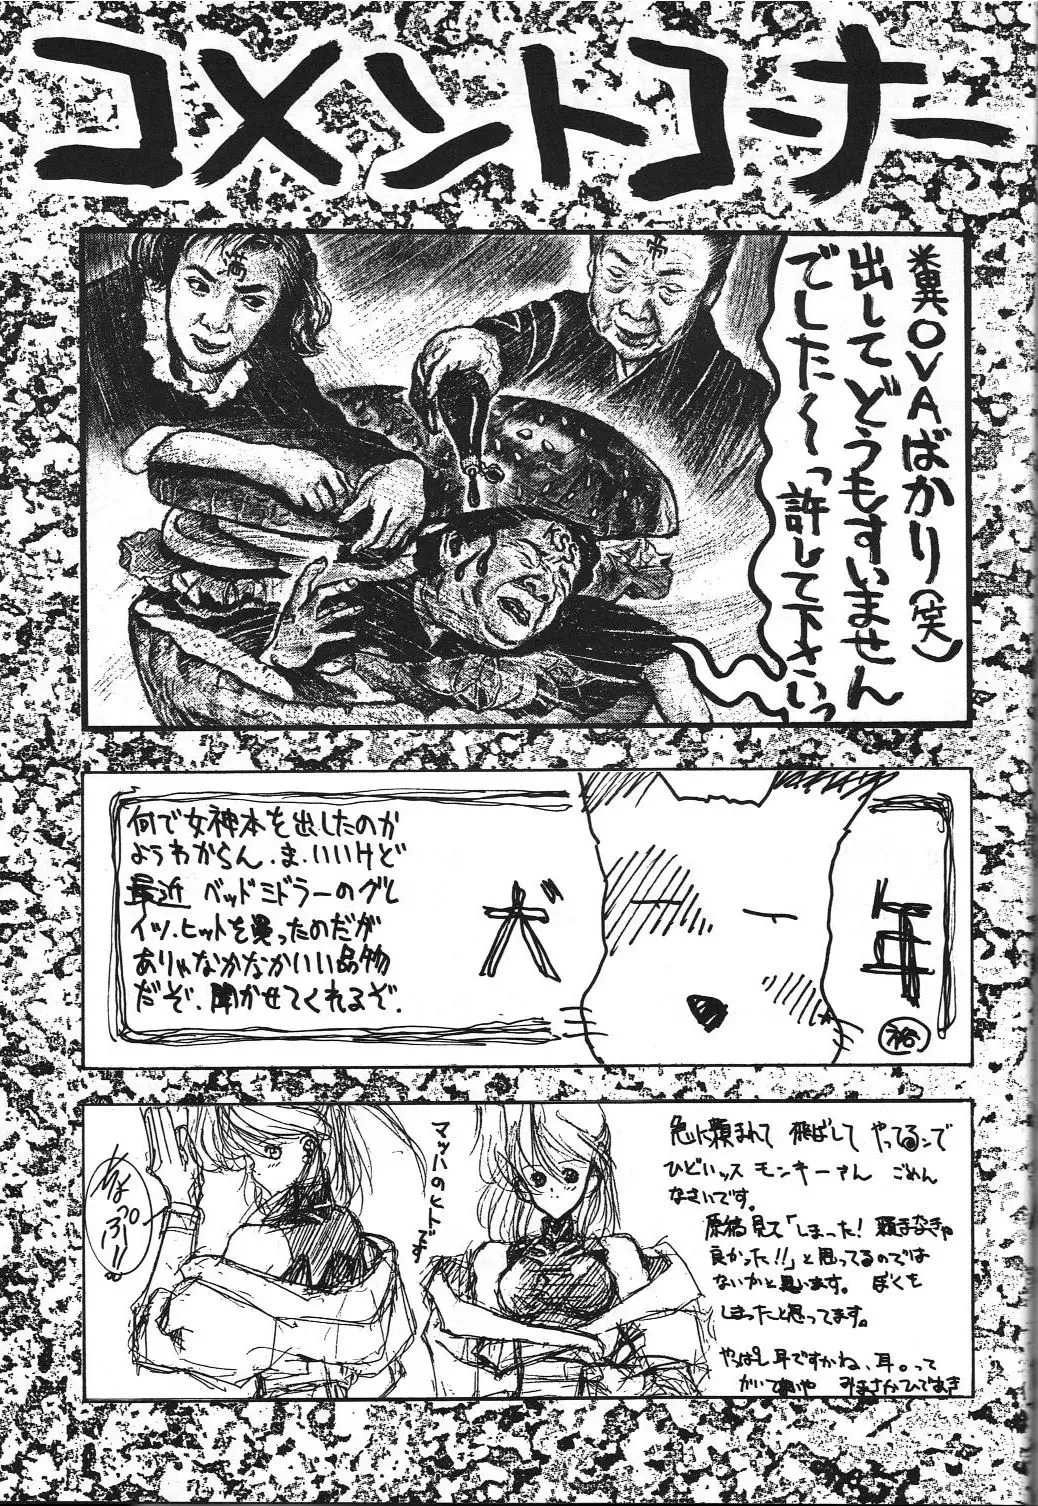 コメントコーナー
糞OVAばかり(笑)
出してどうもすいません
でした〜〜っ許して下さいっ
何で女神本を出したのか
ようわからん.ま.いいけど
最近 ベッドミドラーのグレ
イツ.ヒットを買ったのだが
ありゃなかなかいい品物
だぞ.聞かせてくれるぞ.
マッハのヒトです
急に頼まれて 飛ばして やってるンで
ひどいッス モンキーさん ごめん
なさいです。
原稿見て「しまった! 頼まなきゃ
良かった!!」と思ってるのでは
ないかと思います。 ぼくも
しまったと思ってます。
やっぱし耳ですかね、耳。って
みさかひであき